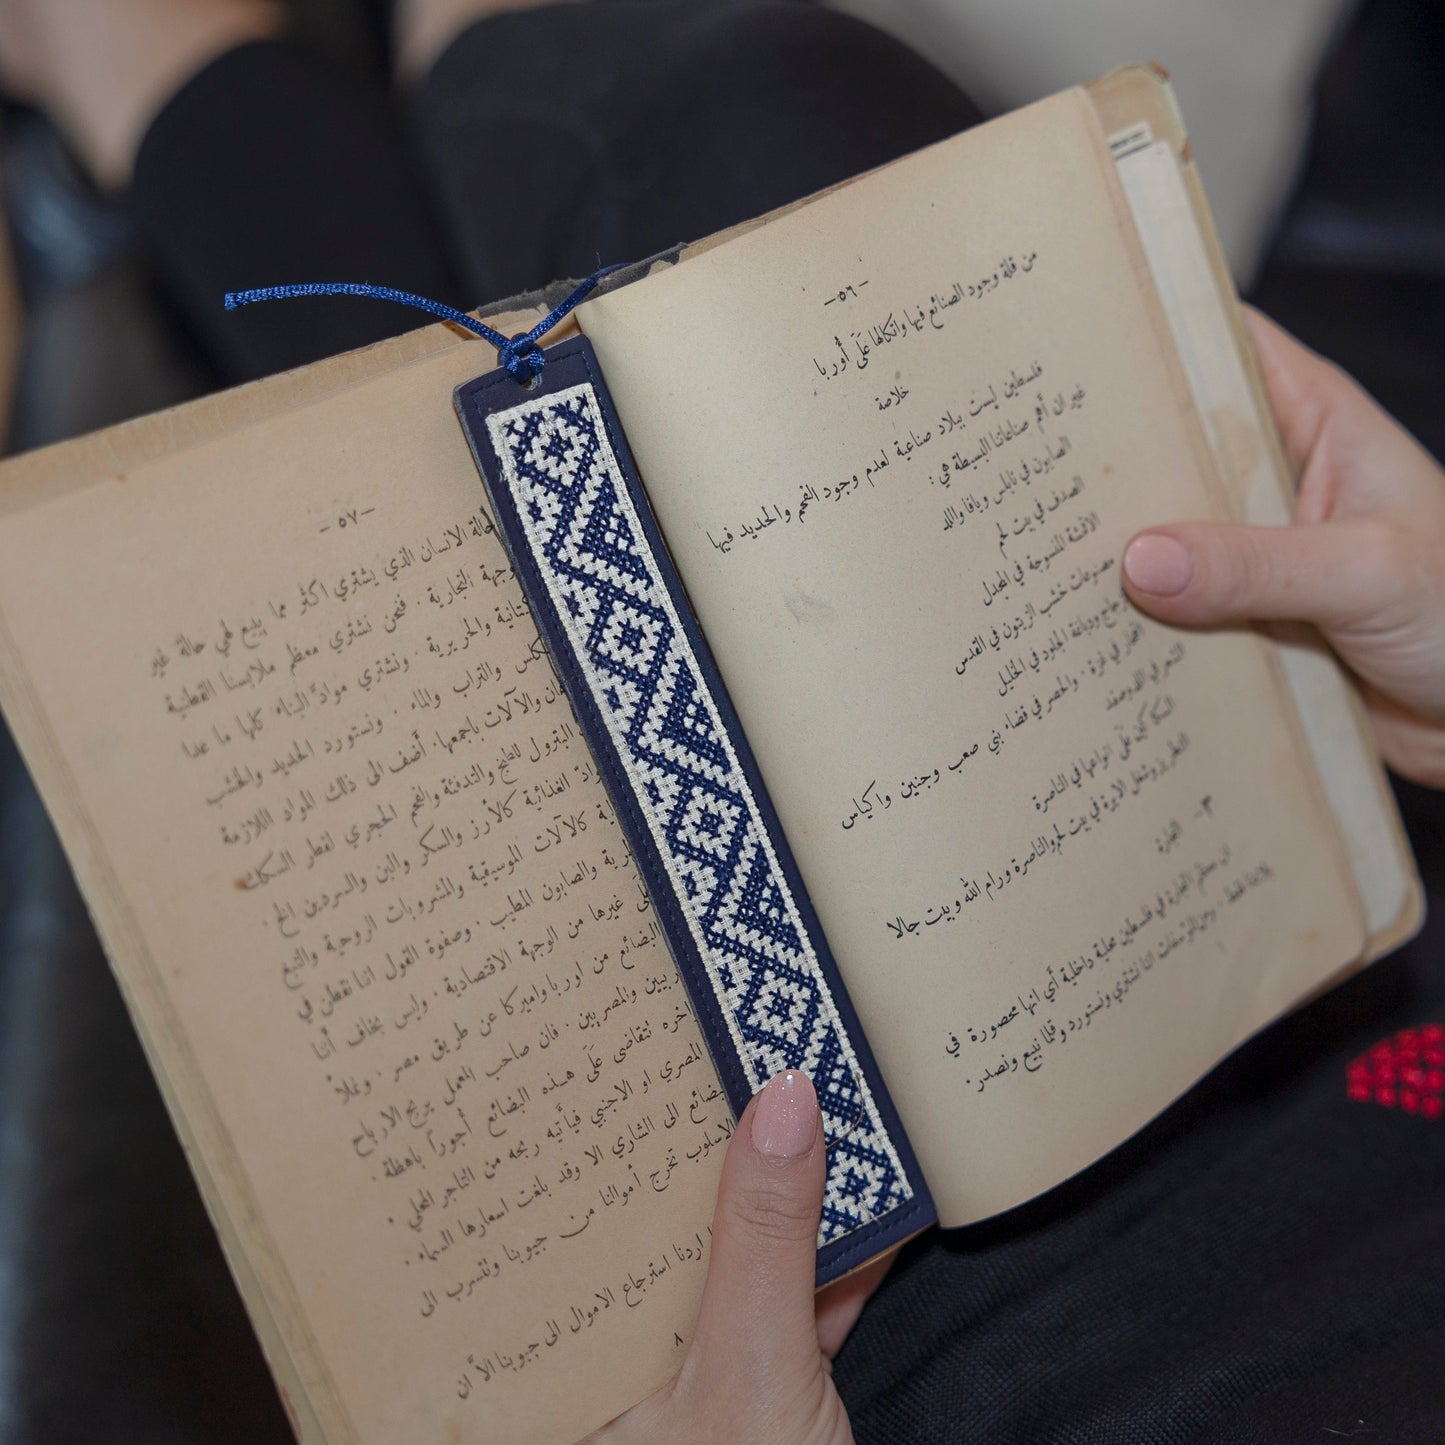 -٥٦-
من قلة وجود الصنائع فيها واتكالها عَلَى أوربا
خلاصة
فلسطين ليست ببلاد صناعية لعدم وجود الفحم والحديد فيها
غير ان أهم صناعاتنا البسيطة هي :
الصابون في نابلس ويافا واللد
الصدف في بيت لحم
الاقمشة المنسوجة في المجدل
مصنوعات خشب الزيتون في القدس
الزجاج ودباغة الجلود في الخليل
الفخار في غزة . والحصر في قضاء بني صعب وجنين واكياس
الشعر في
السكاكين عَلَى انواعها في الناصرة
التطريز وشغل الابرة في بيت لحم والناصرة ورام الله وبيت جالا
٣- التجارة
ان معظم التجارة في فلسطين محلية داخلية أي انها محصورة في
بلادنا فقط . ومن المؤسفات اننا نشتري ونستورد وقلما نبيع ونصدر .
-٥٧-
حالة الانسان الذي يشتري اكثر مما يبيع لهي حالة غير
التجارية . فنحن نشتري معظم ملابسنا القطنية
والحريرية . ونشتري موادّ البناء كلها ما عدا
والتراب والماء . ونستورد الحديد والخشب
والآلات باجمعها . أضف الى ذلك المواد اللازمة
البترول للطبخ والتدفئة والفحم الحجري لقطر السكك
الغذائية كالأرز والسكر والبن والسردين الخ .
كالآلات الموسيقية والمشروبات الروحية والتبغ
والصابون المطيب . وصفوة القول اننا نقطن في
غيرها من الوجهة الاقتصادية . وليس بخاف أننا
البضائع من اوربا واميركا عن طريق مصر . وفضلاً
والمصريين . فان صاحب المعمل يربح الارباح
نتقاضى عَلَى هذه البضائع أجوراً باهظة .
المصري او الاجنبي فيأتيه ربحه من التاجر المحلي .
الى الشاري الا وقد بلغت اسعارها السماء .
الاسلوب تخرج أموالنا من جيوبنا وتتسرب الى
اردنا استرجاع الاموال الى جيوبنا الاّ ان
٨